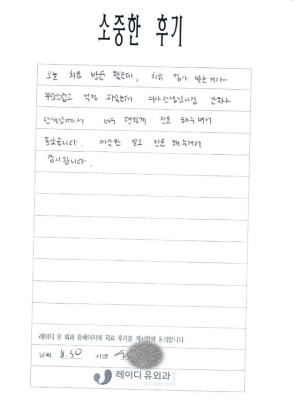 소중한 후기
오늘 처음 방문 했는데, 처음 검사 받는거라
부담스럽고 걱정 되었는데 의사선생님이랑 간호사
선생님께서 너무 편하게 진료 해주셔서
좋았습니다. 꼼꼼한 진료 해주셔서
감사합니다.
레이디 유 외과 홈페이지에 치료 후기를 게시함에 동의합니다.
날짜 8.30 서명
레이디 유외과